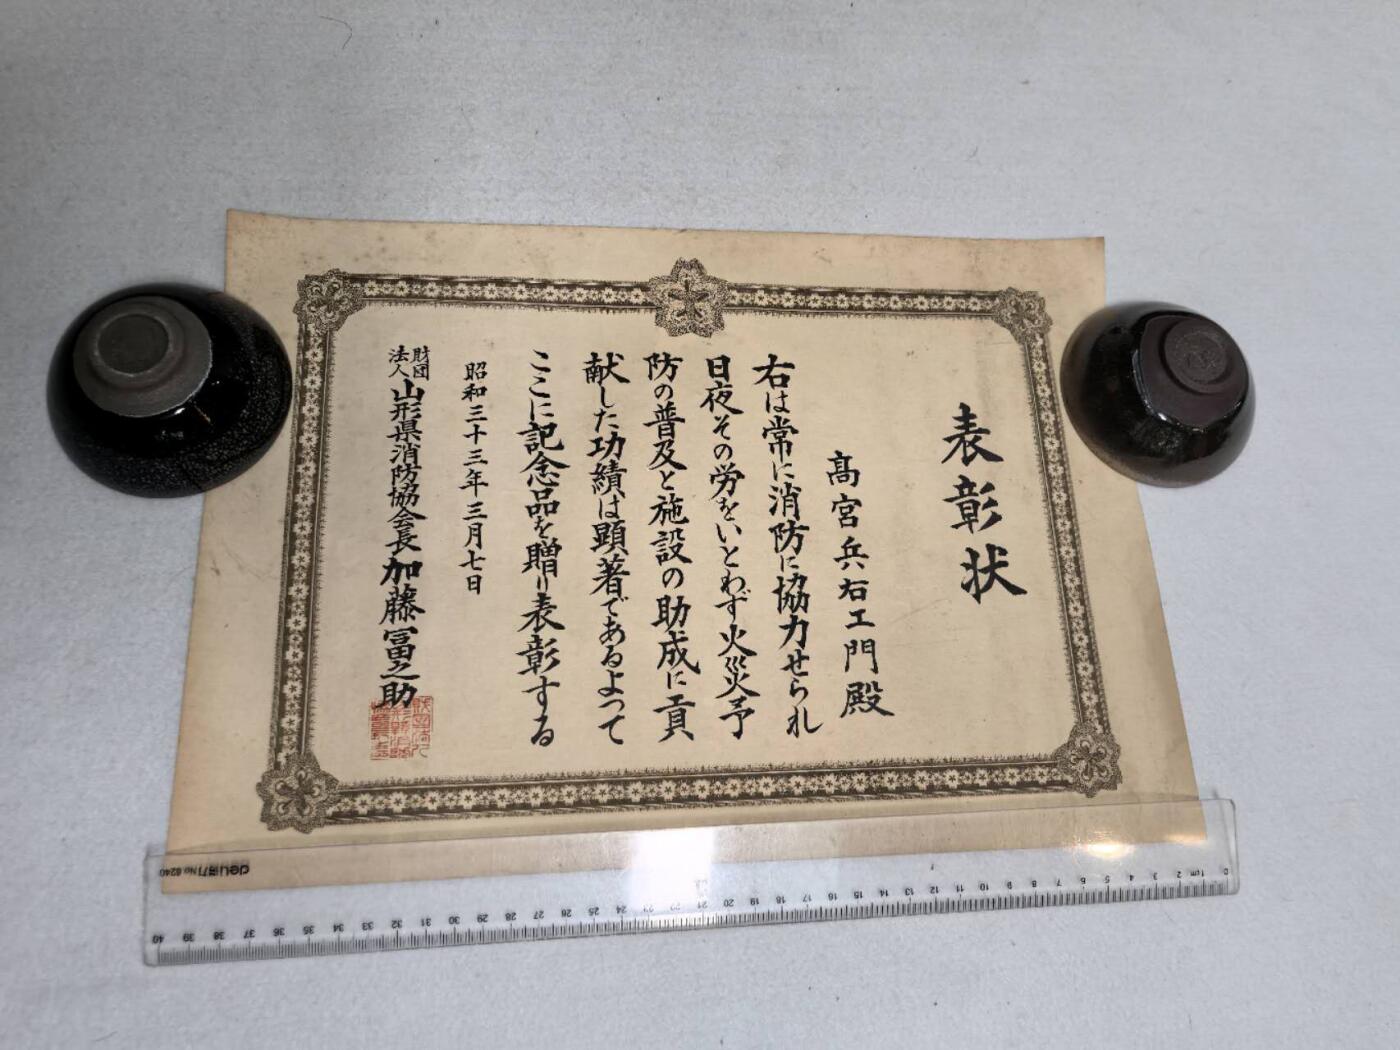 表彰状
髙宮兵右エ門殿
右は常に消防に協力せられ
日夜その労をいとわず火災予
防の普及と施設の助成に貢
献した功績は顕著であるよって
ここに記念品を贈り表彰する
昭和三十三年三月七日
財団法人山形県消防協会長加藤冨之助
deli得力 No.6240
0 1cm 2 3 4 5 6 7 8 9 10 11 12 13 14 15 16 17 18 19 20 21 22 23 24 25 26 27 28 29 30 31 32 33 34 35 36 37 38 39 40